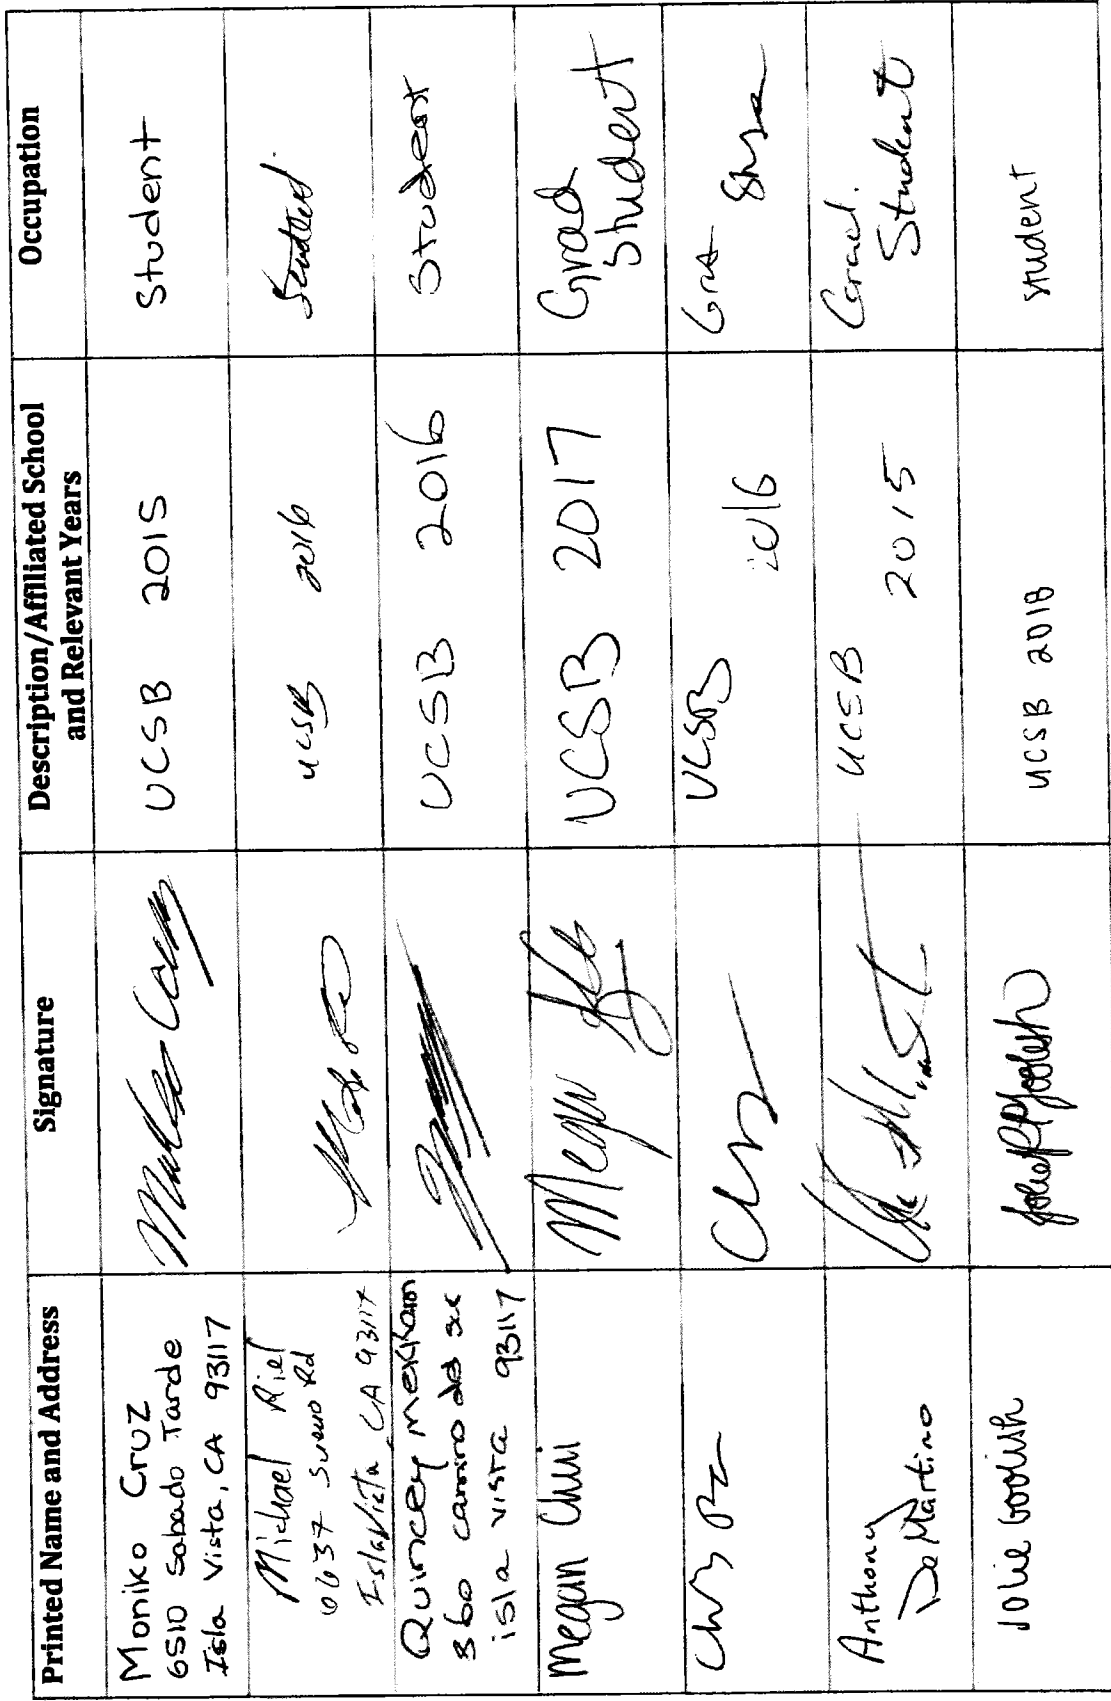 Printed Name and Address
Signature
Description/Affiliated School
and Relevant Years
Occupation
Moniko Cruz
6510 Sabado Tarde
Isla Vista, CA 93117
UCSB 2015
Student
Michael Riel
6637 Sueno Rd
Isla Vista, CA 93117
UCSB 2016
Student
Quincey
camino del sur
isla vista 93117
UCSB 2016
Student
Megan Chui
Megan
UCSB 2017
Grad
Student
Chris
UCSB
2016
Anthony
DeMartino
UCSB
2015
Grad.
Student
Jolie Goolish
UCSB 2018
student